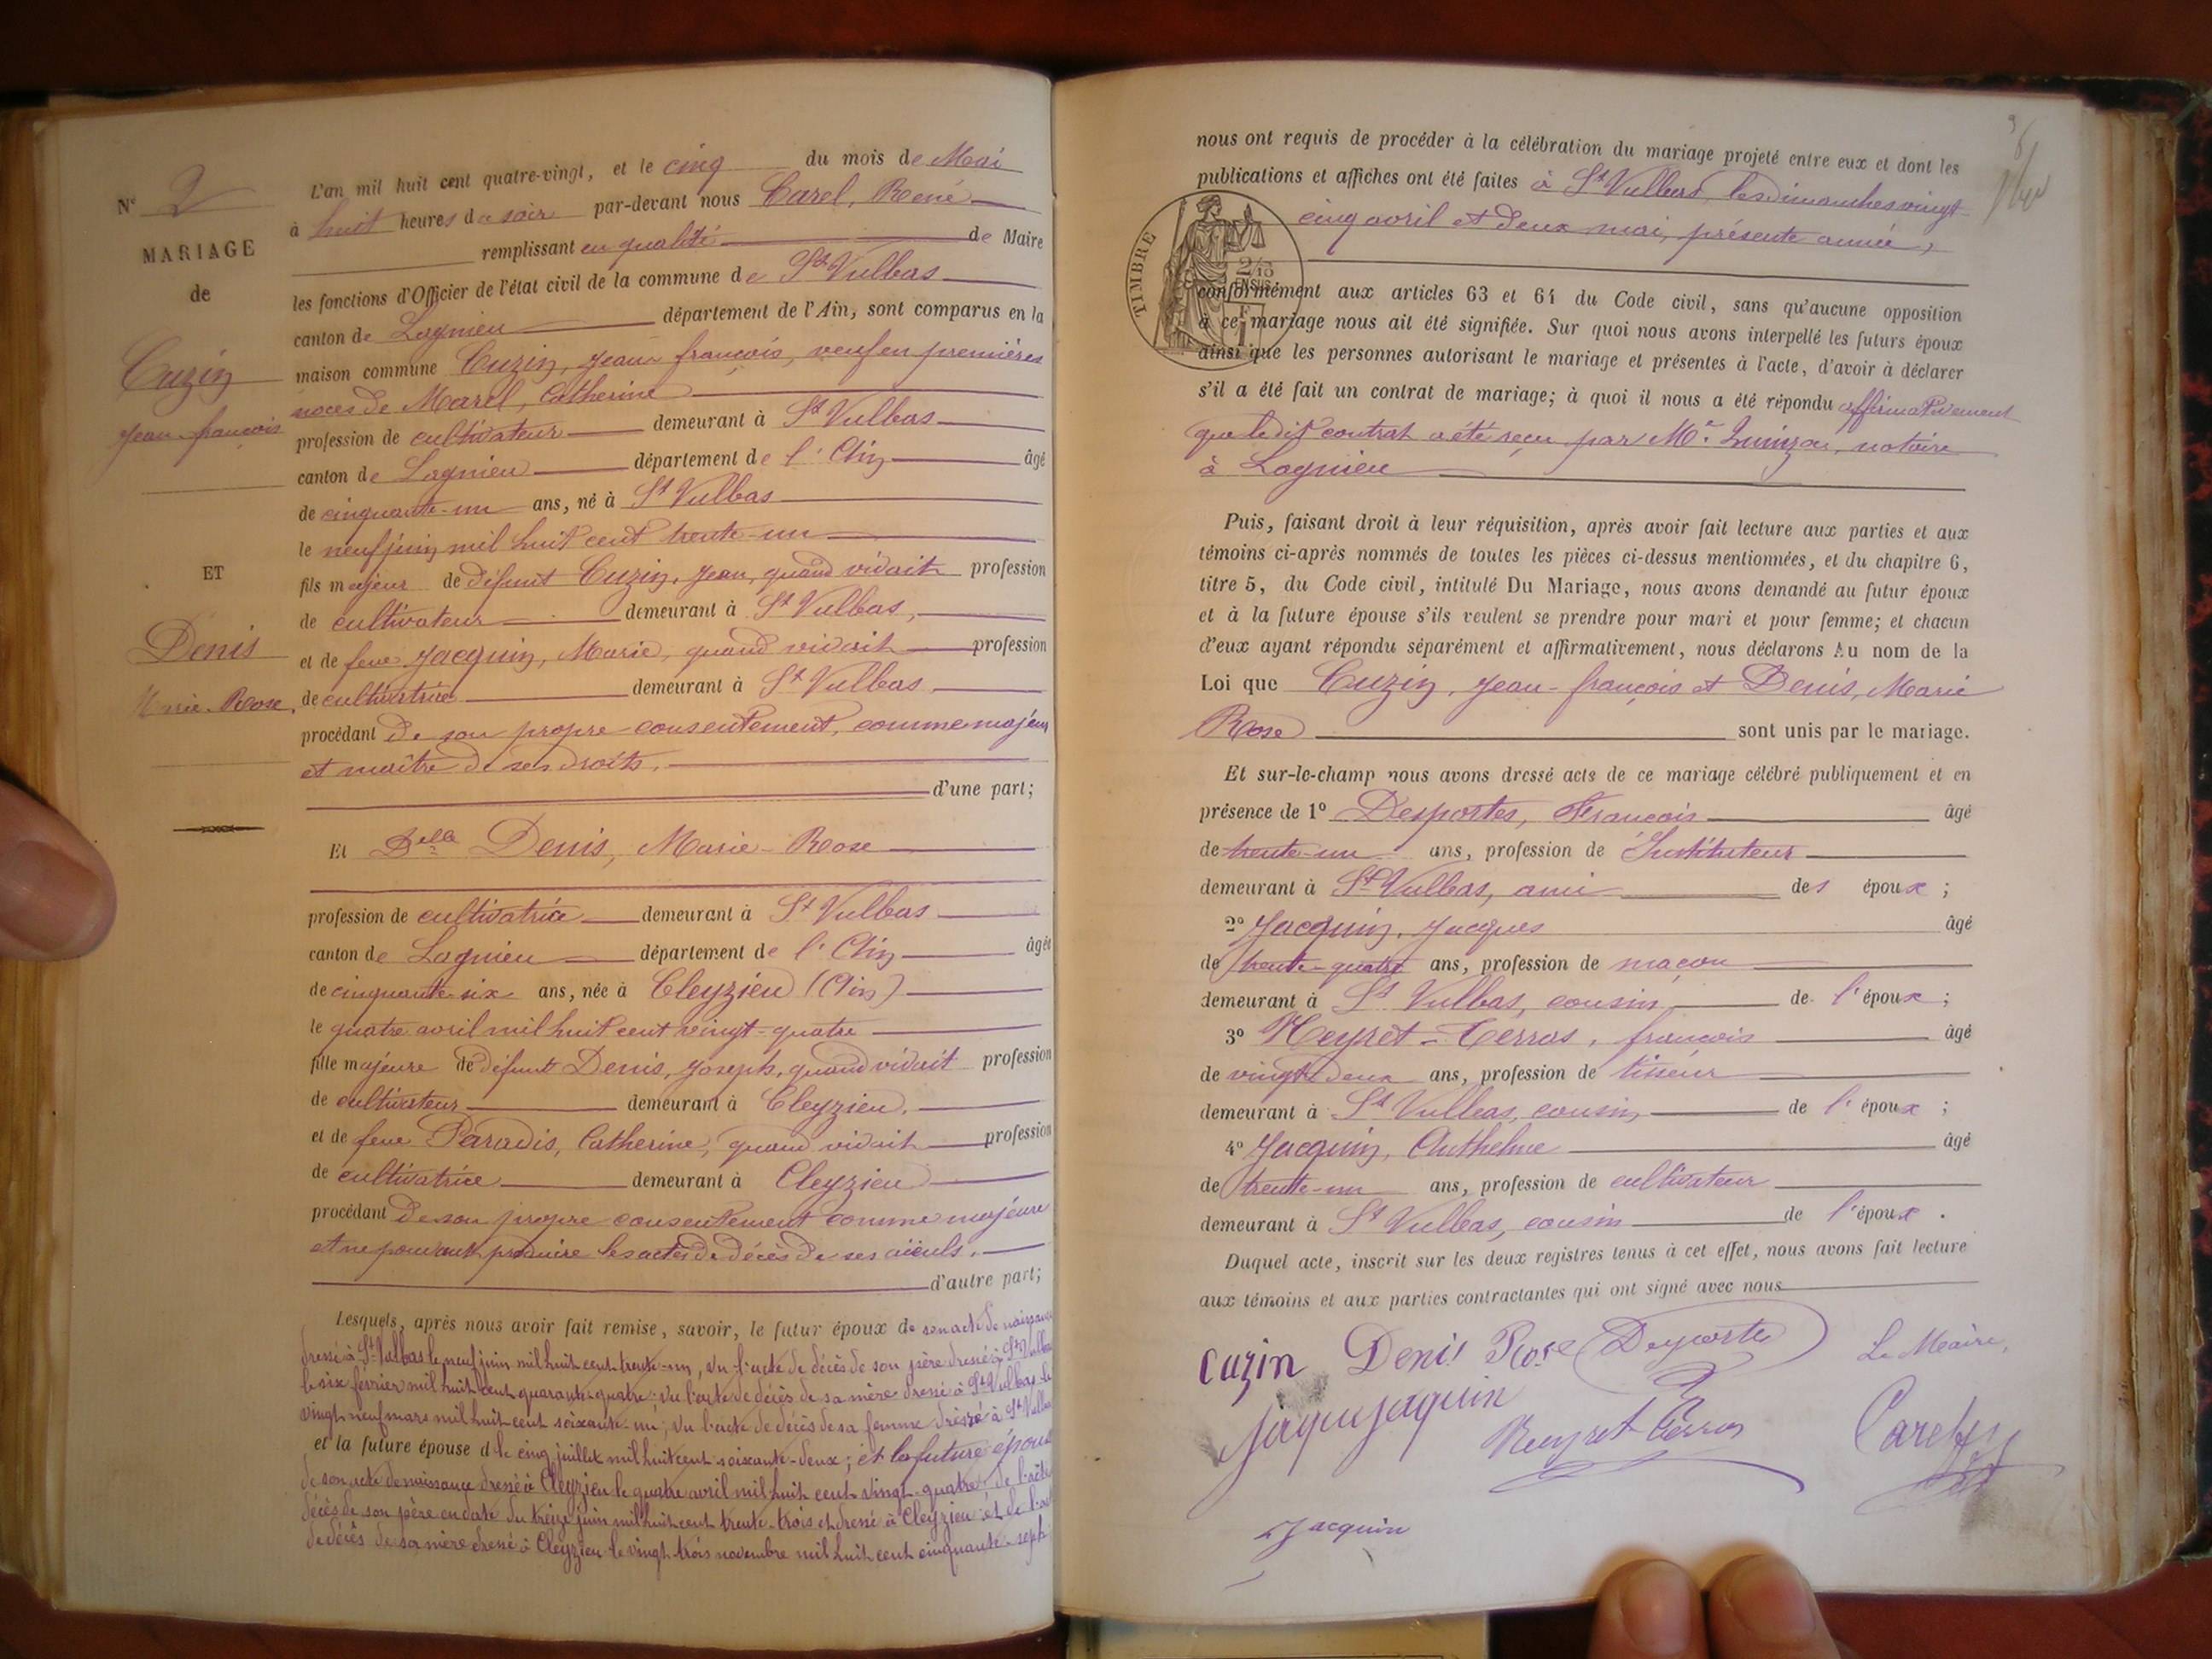 N° 2
MARIAGE
de
Cuzin
Jean-françois
ET
Denis
Marie-Rose,
L'an mil huit cent quatre-vingt, et le cinq du mois de Mai
à huit heures du soir par-devant nous Carel, René
remplissant en qualité de Maire
les fonctions d'Officier de l'état civil de la commune de St Vulbas
canton de Lagnieu département de l'Ain, sont comparus en la
maison commune Cuzin, Jean-françois, veuf en premières
noces de Marel, Catherine
profession de cultivateur demeurant à St Vulbas
canton de Lagnieu département de l'Ain âgé
de cinquante-un ans, né à St Vulbas
le neuf juin mil huit cent trente-un
fils majeur de défunt Cuzin, Jean, quand vivait profession
de cultivateur demeurant à St Vulbas,
et de feue Jacquin, Marie, quand vivait profession
de cultivatrice demeurant à St Vulbas
procédant de son propre consentement, comme majeur
et maître de ses droits.
d'une part;
Et Delle Denis, Marie-Rose
profession de cultivatrice demeurant à St Vulbas
canton de Lagnieu département de l'Ain âgée
de cinquante-six ans, née à Cleyzieu (Ain)
le quatre avril mil huit cent vingt-quatre
fille majeure de défunt Denis, Joseph, quand vivait profession
de cultivateur demeurant à Cleyzieu,
et de feue Paradis, Catherine, quand vivait profession
de cultivatrice demeurant à Cleyzieu
procédant de son propre consentement comme majeure
et ne pouvant produire les actes de décès de ses aïeuls.
d'autre part;
Lesquels, après nous avoir fait remise, savoir, le futur époux de son acte de naissance
dressé à St Vulbas le neuf juin mil huit cent trente-un, vu l'acte de décès de son père dressé à St Vulbas
le six février mil huit cent quarante-quatre; vu l'acte de décès de sa mère dressé à St Vulbas le
vingt neuf mars mil huit cent soixante-un; vu l'acte de décès de sa femme dressé à St Vulbas
et la future épouse d le cinq juillet mil huit cent soixante-deux; et la future épouse
de son acte de naissance dressé à Cleyzieu le quatre avril mil huit cent vingt-quatre, de l'acte
décès de son père en date du treize juin mil huit cent trente-trois et dressé à Cleyzieu et de l'acte
de décès de sa mère dressé à Cleyzieu le vingt trois novembre mil huit cent cinquante-sept
nous ont requis de procéder à la célébration du mariage projeté entre eux et dont les
publications et affiches ont été faites à St Vulbas, les dimanches vingt
cinq avril et deux mai, présente année,
TIMBRE
conformément aux articles 63 et 64 du Code civil, sans qu'aucune opposition
à ce mariage nous ait été signifiée. Sur quoi nous avons interpellé les futurs époux
ainsi que les personnes autorisant le mariage et présentes à l'acte, d'avoir à déclarer
s'il a été fait un contrat de mariage; à quoi il nous a été répondu affirmativement
que ledit contrat a été reçu par Me notaire
à Lagnieu
Puis, faisant droit à leur réquisition, après avoir fait lecture aux parties et aux
témoins ci-après nommés de toutes les pièces ci-dessus mentionnées, et du chapitre 6,
titre 5, du Code civil, intitulé Du Mariage, nous avons demandé au futur époux
et à la future épouse s'ils veulent se prendre pour mari et pour femme; et chacun
d'eux ayant répondu séparément et affirmativement, nous déclarons Au nom de la
Loi que Cuzin, Jean-françois et Denis, Marie
Rose sont unis par le mariage.
Et sur-le-champ nous avons dressé acte de ce mariage célébré publiquement et en
présence de 1° Desportes, François âgé
de trente-un ans, profession de Instituteur
demeurant à St Vulbas, ami des époux;
2° Jacquin, Jacques âgé
de trente-quatre ans, profession de maçon
demeurant à St Vulbas, cousin de l'époux;
3° Neyret-Terras, françois âgé
de vingt deux ans, profession de tisseur
demeurant à St Vulbas, cousin de l'époux;
4° Jacquin, Anthelme âgé
de trente-un ans, profession de cultivateur
demeurant à St Vulbas, cousin de l'époux.
Duquel acte, inscrit sur les deux registres tenus à cet effet, nous avons fait lecture
aux témoins et aux parties contractantes qui ont signé avec nous
Cuzin Denis Rose Desportes Le Maire,
Jaque Jaquin Neyret Terras Carel
Jacquin